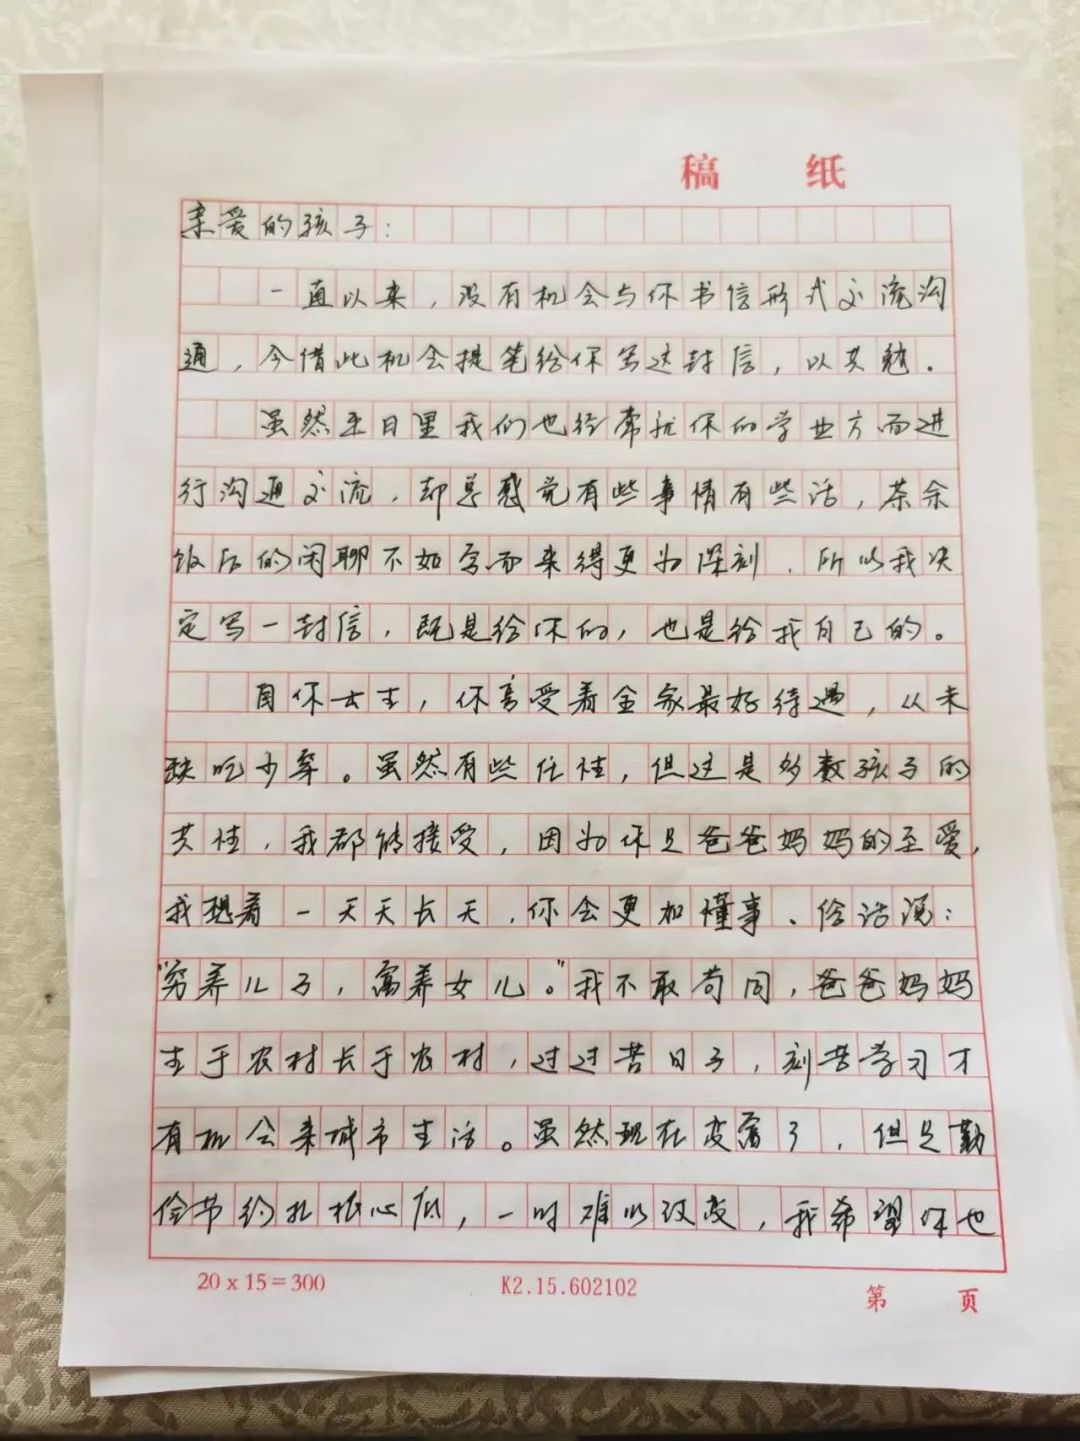 稿 纸
亲爱的孩子:
一直以来,没有机会与你书信形式交流沟
通,今借此机会提笔给你写这封信,以共勉.
虽然平日里我们也经常就你的学业方面进
行沟通交流,却总感觉有些事情有些话,茶余
饭后的闲聊不如写而来得更为深刻.所以我决
定写一封信,既是给你的,也是给我自己的。
自你出生,你享受着全家最好待遇,从未
缺吃少穿。虽然有些任性,但这是多数孩子的
共性,我都能接受,因为你是爸爸妈妈的至爱,
我想着一天天长天,你会更加懂事、俗话说:
"穷养儿子,富养女儿。"我不敢苟同,爸爸妈妈
生于农村长于农村,过过苦日子,刻苦学习才
有机会来城市生活。虽然现在变富了,但是勤
俭节约扎根心底,一时难以改变,我希望你也
20 x 15=300 K2.15.602102 第 页